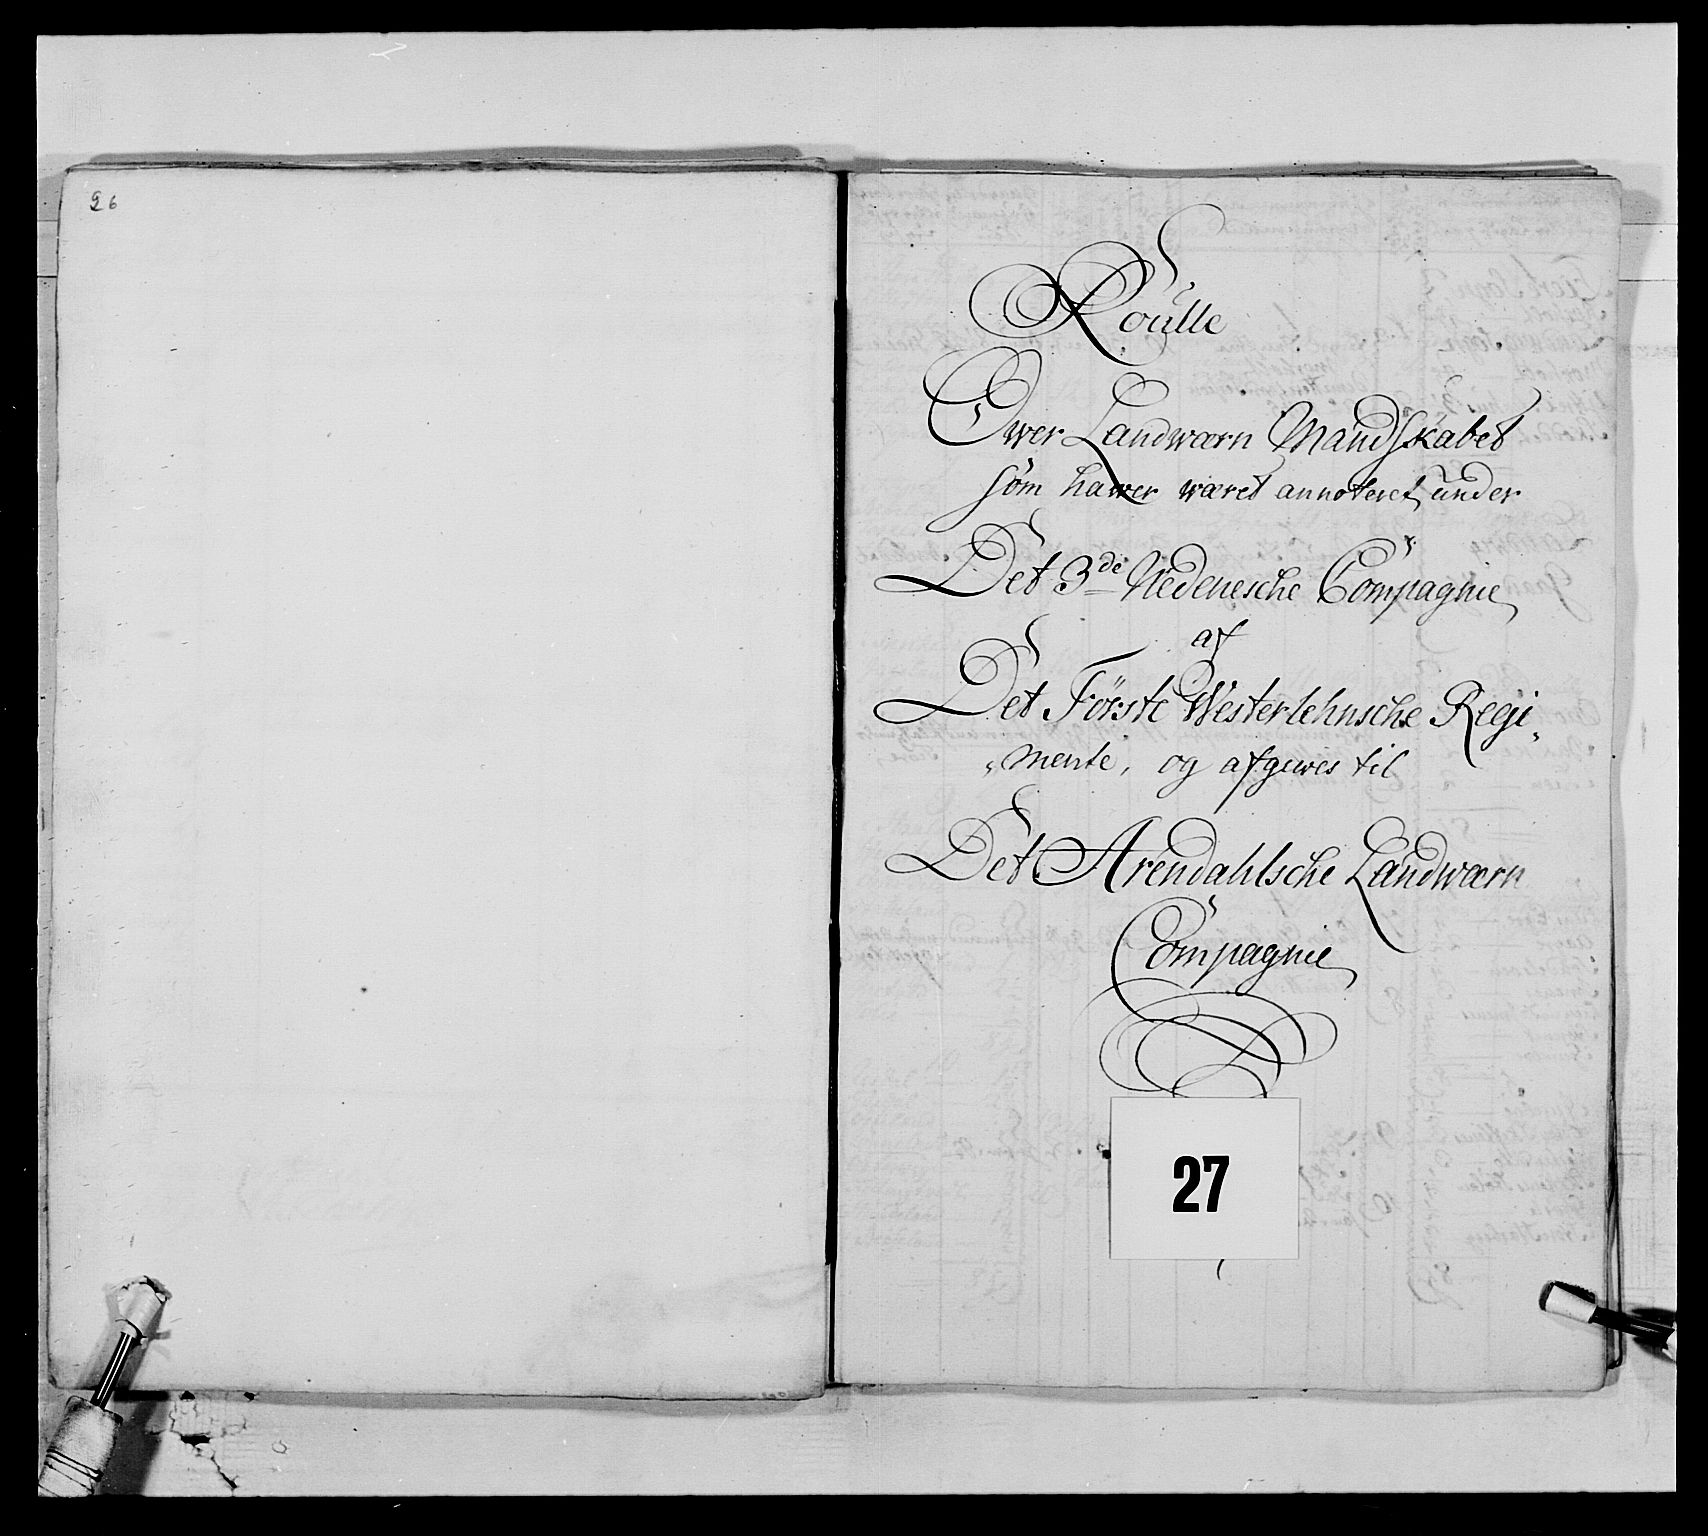 26
Roulle
Ower Landwærn Mandskabet
som hawer wæret annoteret under
Det 3de Nedenesche Compagnie
af
Det Förste Westerlehnsche Regi„
„mente, og afgiwes til
Det Arendahlsche Landwærn
Compagnie
27